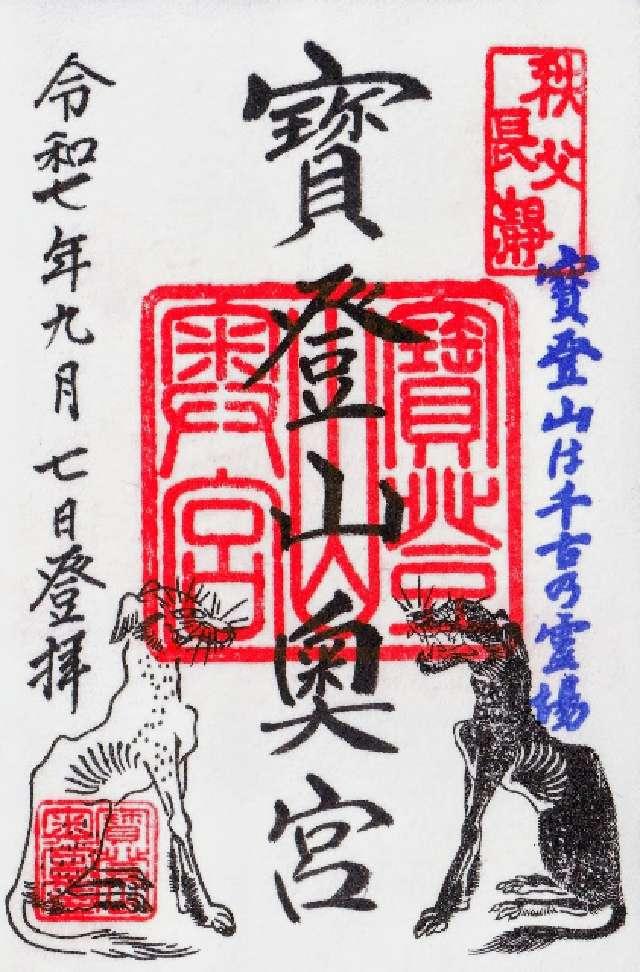 秩父
長瀞
寶登山は千古の霊場
寶登山奥宮
寶登山奥宮
令和七年九月七日登拝